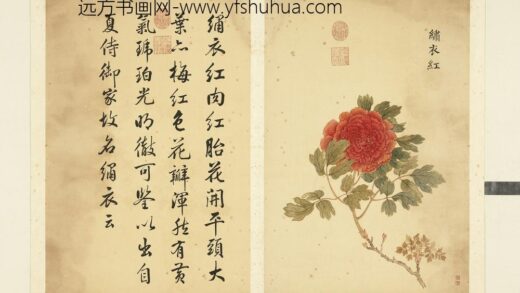 远方书画网-www.yfshuhua.com
繡衣紅
繡衣红肉红胎花開平頭大
葉六梅红色花瓣渾然有黄
氣琥珀光明徹可鉴以出自
夏侍御家故名繡衣云